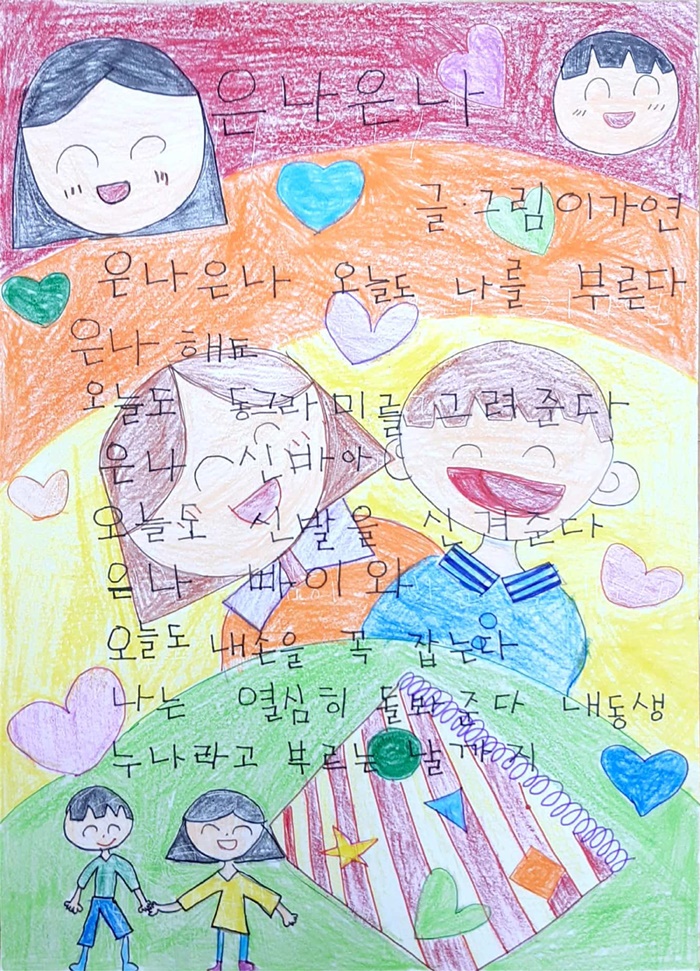 은나은나
글.그림 이가연
은나은나 오늘도 나를 부른다
은나 해됴
오늘도 동그라미를 그려준다
은나 신바아
오늘도 신발을 신겨준다
은나 빠이와
오늘도 내손을 꼭 잡는다
나는 열심히 돌봐준다 내동생
누나라고 부르는 날까지